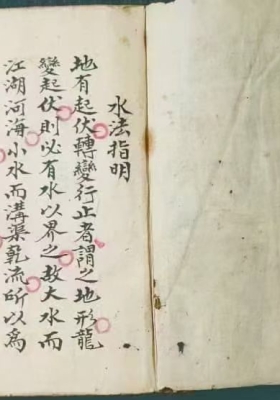 水法指明
地有起伏轉變行止者謂之地形龍
變起伏則必有水以界之故大水而
江湖河海小水而溝渠乾流所以為